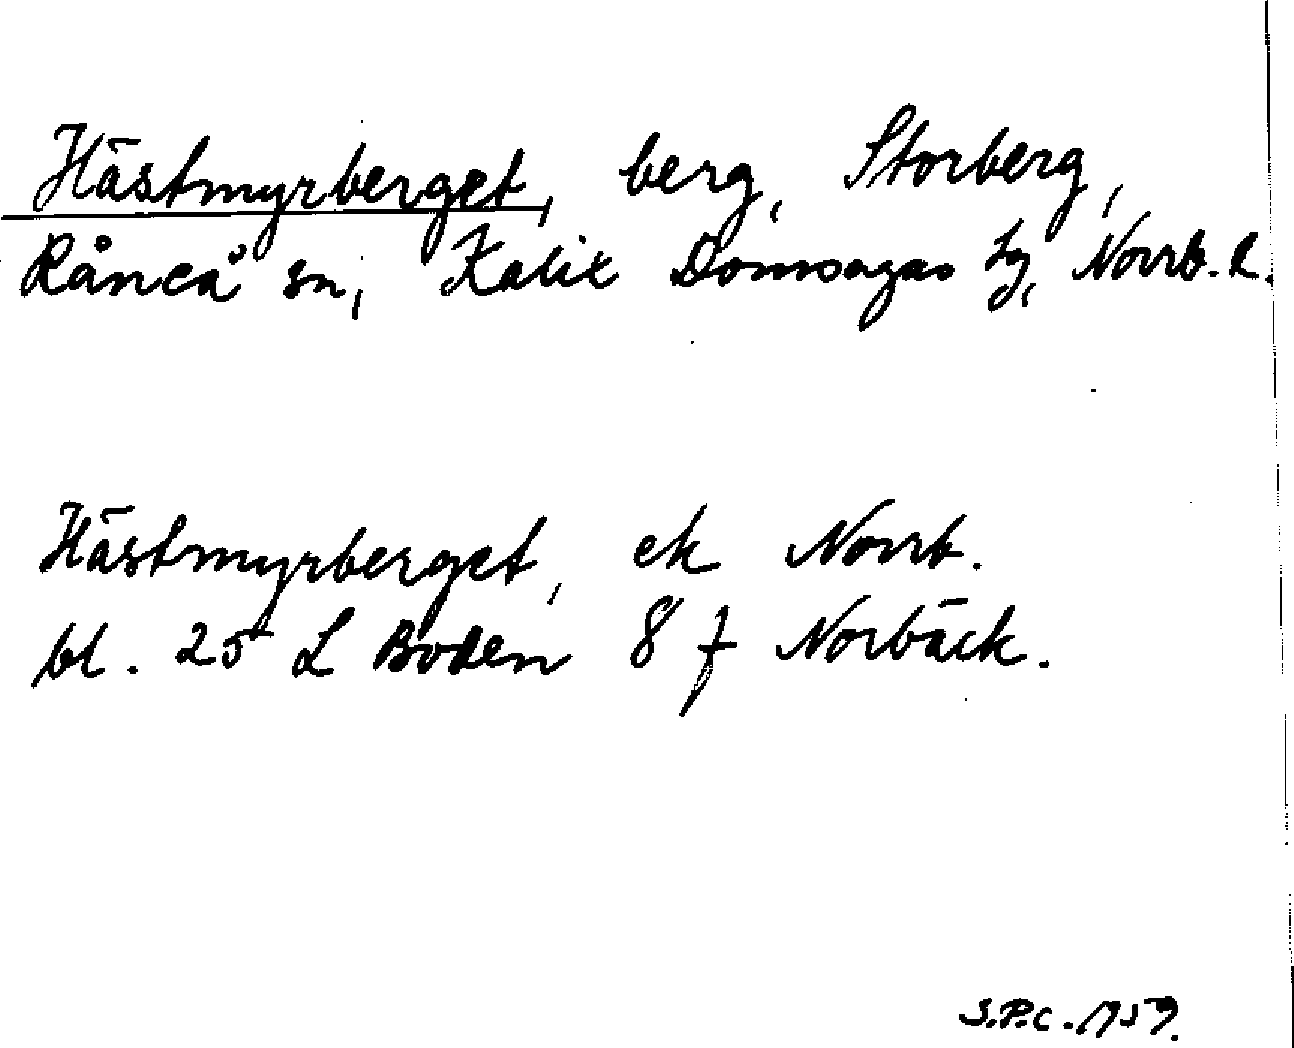 Hästmyrberget, berg, Storberg,
Råneå sn, Kalix Domsagas tg, Norrb. l.
Hästmyrberget, ek Norrb.
bl. 25 L Boden 8 f Norbäck.
S.P.C. 1959.